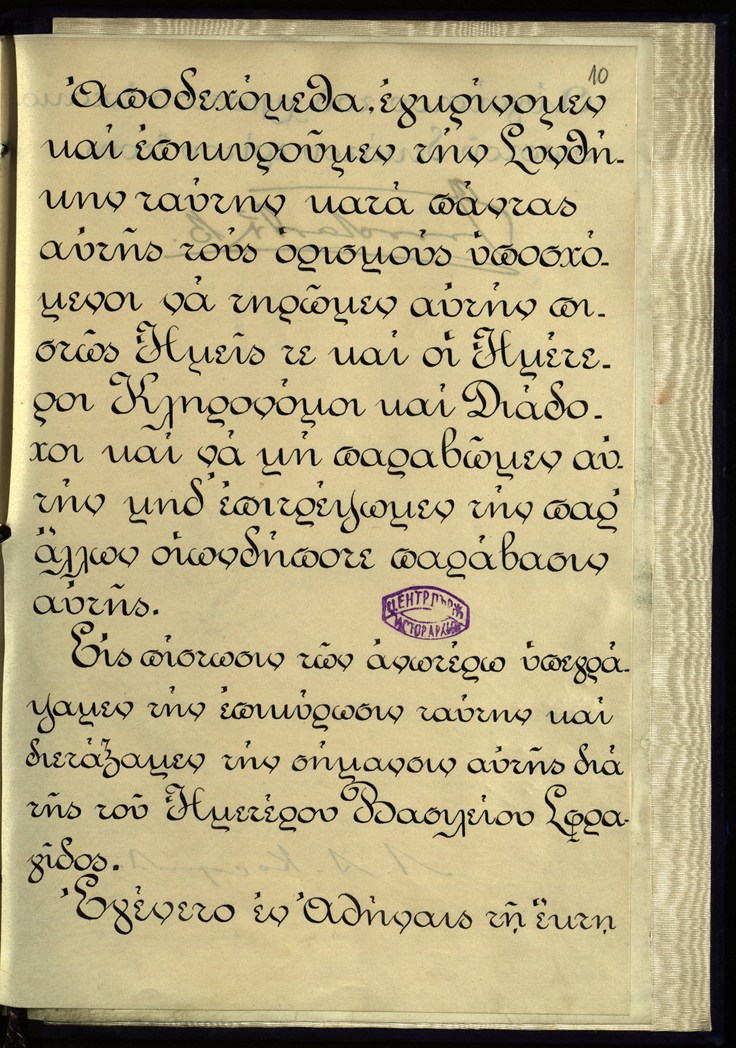 10
Ἀποδεχόμεθα, ἐγκρίνομεν
καὶ ἐπικυροῦμεν τὴν Συνθή-
κην ταύτην κατὰ πάντας
αὐτῆς τοὺς ὁρισμοὺς ὑποσχό-
μενοι νὰ τηρῶμεν αὐτὴν πι-
στῶς Ἡμεῖς τε καὶ οἱ Ἡμέτε-
ροι Κληρονόμοι καὶ Διάδο-
χοι καὶ νὰ μὴ παραβῶμεν αὐ-
τὴν μηδ' ἐπιτρέψωμεν τὴν παρ'
ἄλλων οἱωνδήποτε παράβασιν
αὐτῆς.
ЦЕНТР. ДЪРЖ.
ИСТОР АРХИВ
Εἰς πίστωσιν τῶν ἀνωτέρω ὑπεγρά-
ψαμεν τὴν ἐπικύρωσιν ταύτην καὶ
διετάξαμεν τὴν σήμανσιν αὐτῆς διὰ
τῆς τοῦ Ἡμετέρου Βασιλείου Σφρα-
γῖδος.
Ἐγένετο ἐν Ἀθήναις τῇ ἕκτῃ